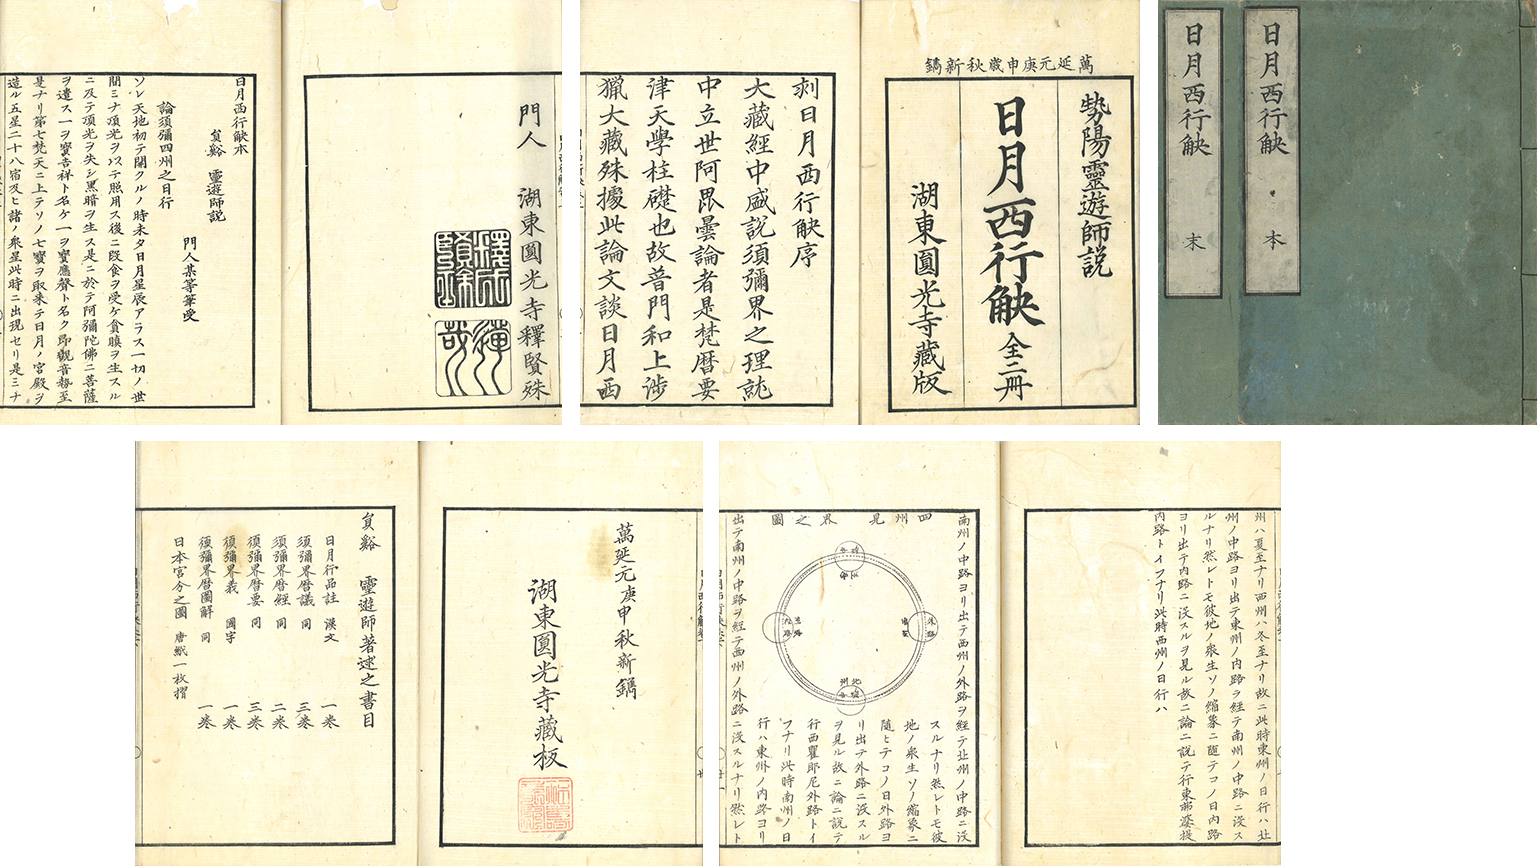 日月西行觖
本
日月西行觖
末
萬延元庚申歳秋新鐫
勢陽靈遊師説
日月西行觖 全二冊
湖東圓光寺藏版
刻日月西行觖序
大藏經中盛説須彌界之理就
中立世阿毘曇論者是梵暦要
津天學柱礎也故普門和上渉
獵大藏殊據此論文談日月西
門人 湖東圓光寺釋賢殊
日月西行觖本
貟谿 靈遊師説
門人某等筆受
論須彌四州之日行
ソレ天地初テ開クルノ時未タ日月星辰アラス一切ノ世
間ミナ項光ヲ以テ照用ス後ニ段食ヲ受ケ貪瞋ヲ生スル
ニ及テ項光ヲ失シ黒暗ヲ生ス是ニ於テ阿彌陀佛二菩薩
ヲ遣ス一ヲ寳吉祥ト名ケ一ヲ寳應聲ト名ク即觀音勢至
是ナリ第七梵天ニ上テソノ七寳ヲ取来テ日月ノ宮殿ヲ
造ル五星二十八宿及ヒ諸ノ衆星此時ニ出現セリ是ミナ
州ハ夏至ナリ西州ハ冬至ナリ故ニ此時東州ノ日行ハ北
州ノ中路ヨリ出テ東州ノ内路ヲ經テ南州ノ中路ニ没ス
ルナリ然レトモ彼地ノ衆生ソノ縮象ニ随テコノ日内路
ヨリ出テ内路ニ没スルヲ見ル故ニ論ニ説テ行東弗婆提
内路トイフナリ此時西州ノ日行ハ
南州ノ中路ヨリ出テ西州ノ外路ヲ經テ北州ノ中路ニ没
四州見界之圖
北州
スルナリ然レトモ彼
地ノ衆生ソノ縮象ニ
随ヒテコノ日外路ヨ
リ出テ外路ニ没スル
ヲ見ル故ニ論ニ説テ
行西瞿耶尼外路トイ
フナリ此時南州ノ日
行ハ東州ノ内路ヨリ
出テ南州ノ中路ヲ經テ西州ノ外路ニ没スルナリ然レト
萬延元庚申秋新鐫
湖東圓光寺藏板
貟谿 靈遊師著述之書目
日月行品註 漢文 一巻
須彌界暦議 同 三巻
須彌界暦經 同 二巻
須彌界暦要 同 三巻
須彌界義 國字 一巻
須彌界暦圖解 同 一巻
日本宮分之圖 唐紙一枚摺